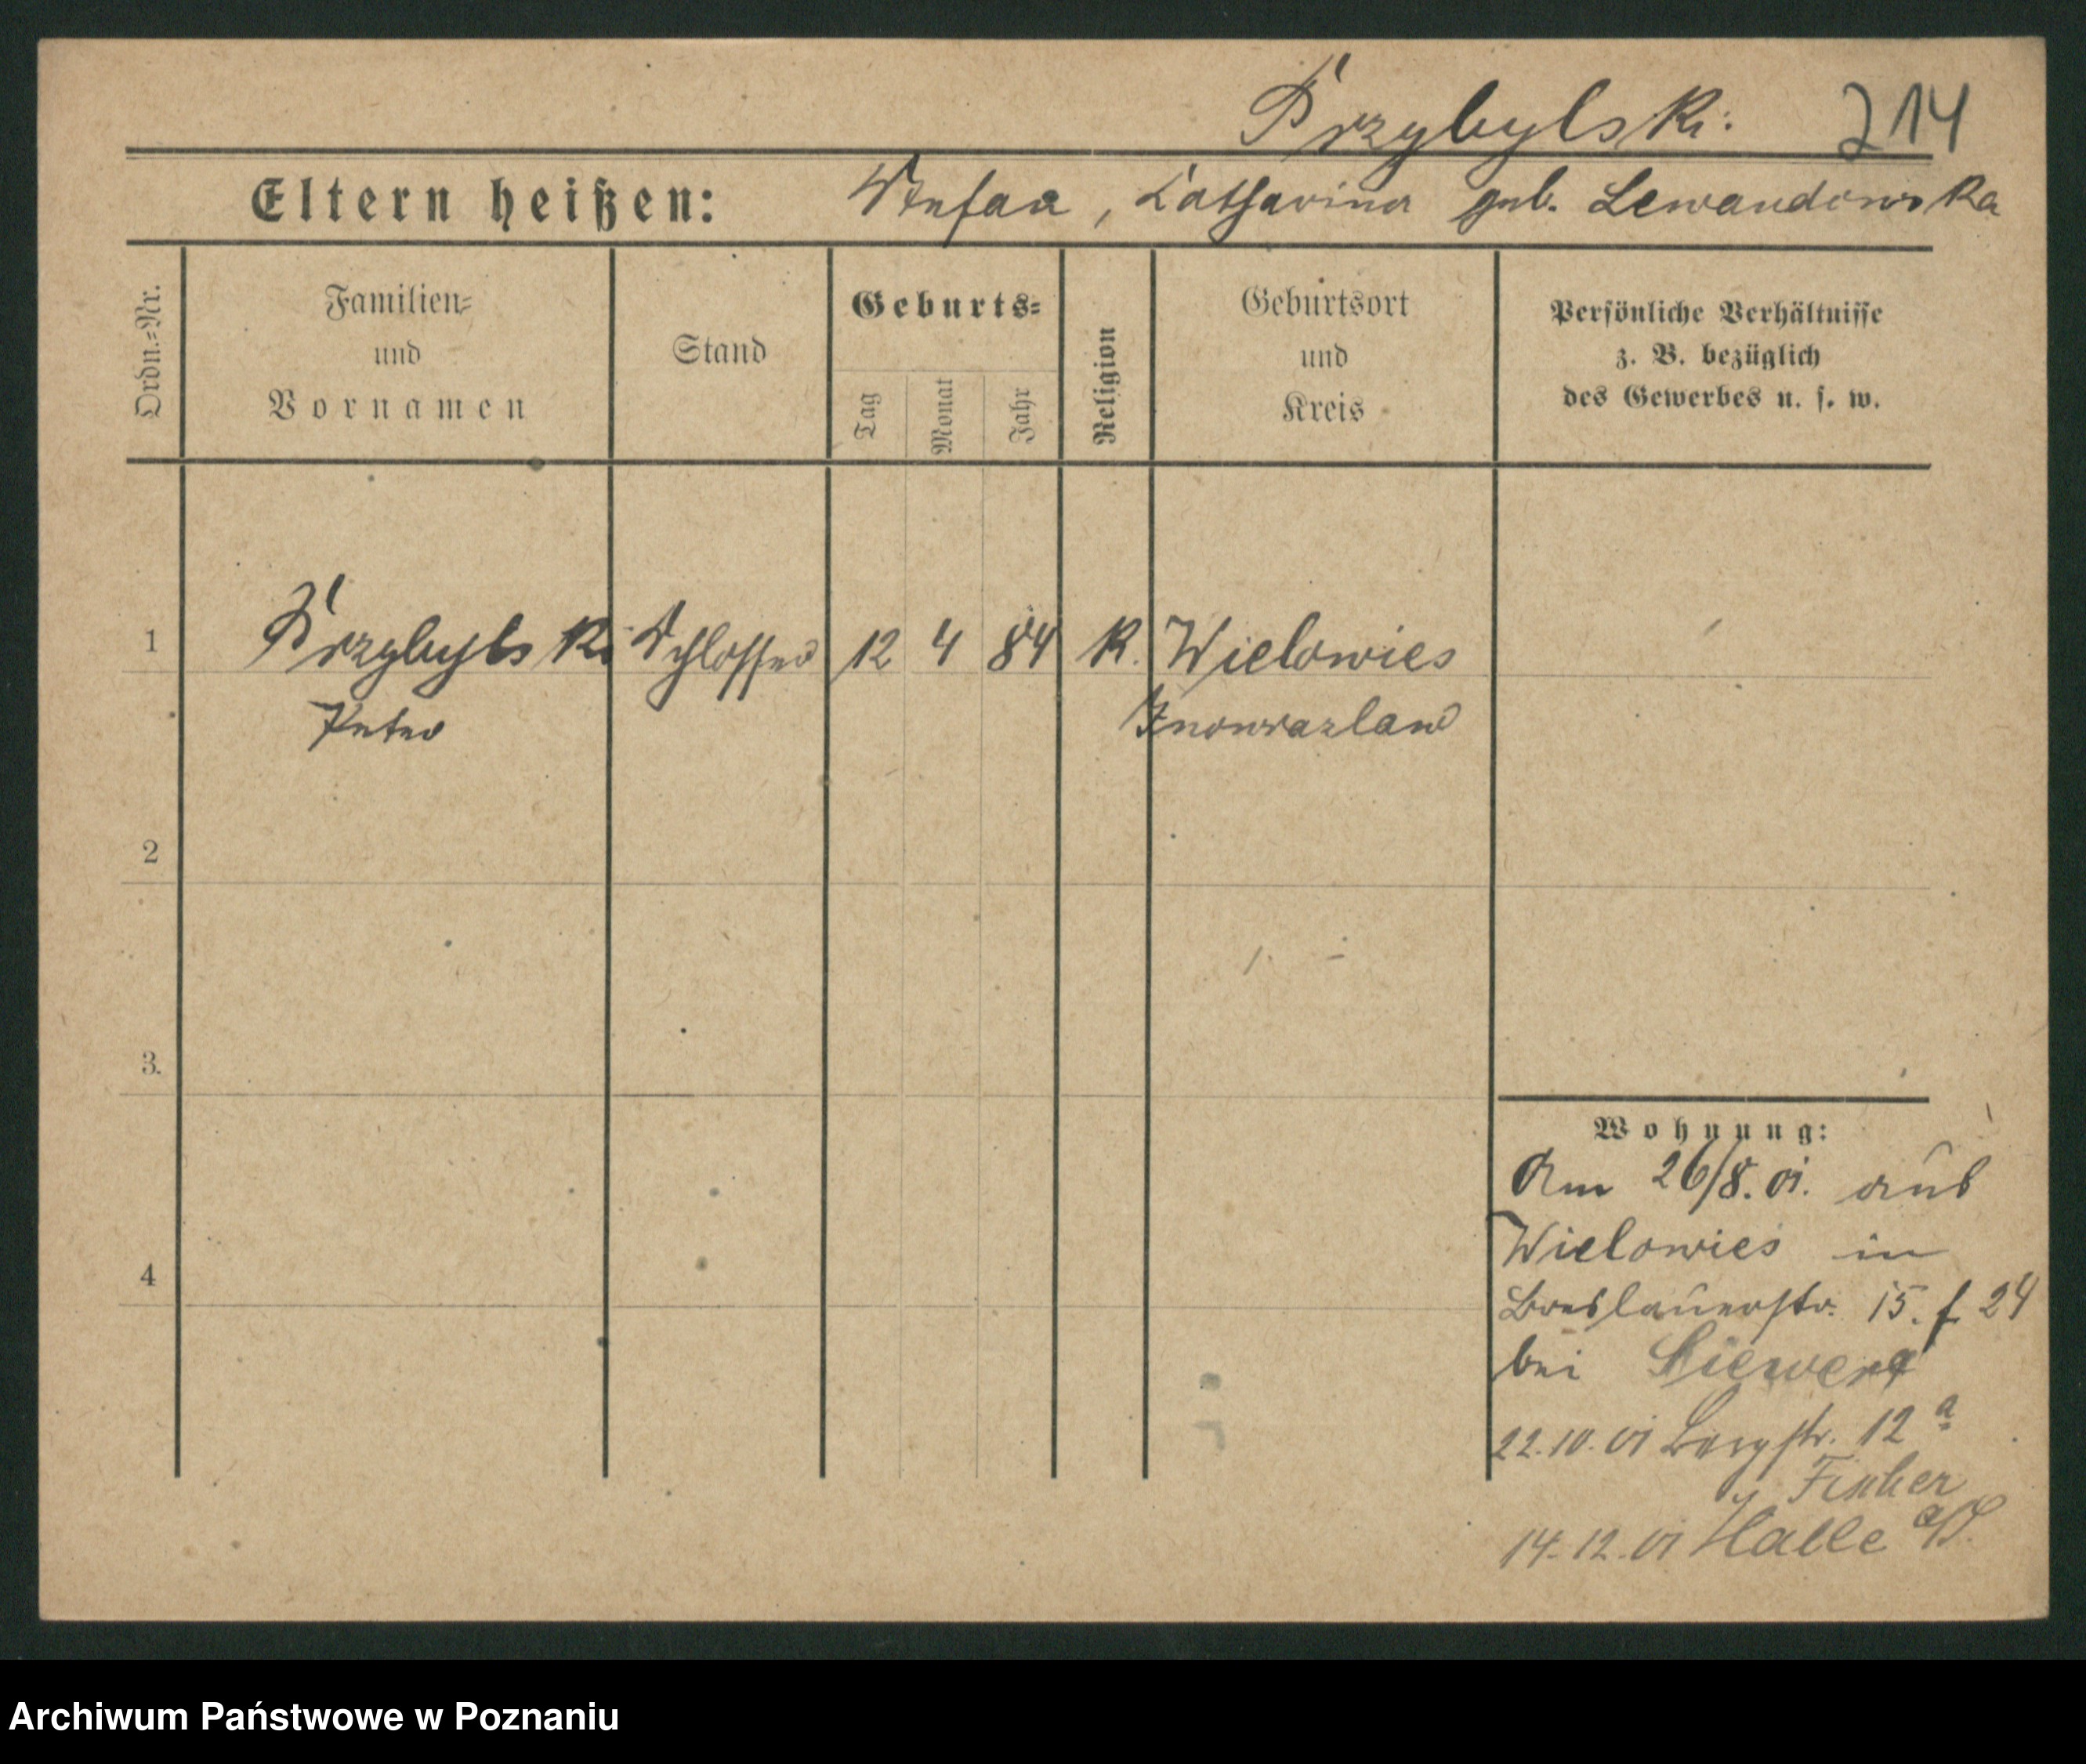 Przybylski. 214
Eltern heißen: Stefan, Catharina geb. Lewandowska
Ordn.-Nr.
Familien-
und
Vornamen
Stand
Geburts-
Tag
Monat
Jahr
Religion
Geburtsort
und
Kreis
Persönliche Verhältnisse
z. B. bezüglich
des Gewerbes u. s. w.
1 Przybylski Schlosser 12 4 84 K. Wielowies
Peter Inowrazlaw
2
3.
4
Wohnung:
Am 26/8. 01. aus
Wielowies in
Breslauerstr. 15. f. 24
bei Siewert
22.10.01 Bergstr. 12 a
14.12.01 Halle a/S.
Archiwum Państwowe w Poznaniu